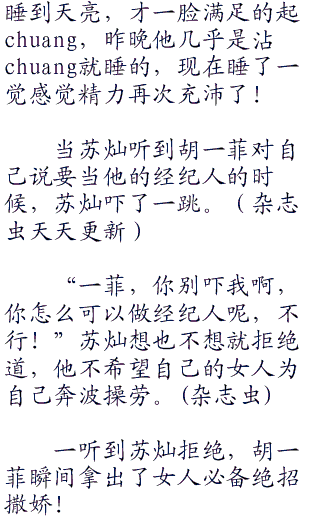 睡到天亮，才一脸满足的起
chuang，昨晚他几乎是沾
chuang就睡的，现在睡了一
觉感觉精力再次充沛了！
当苏灿听到胡一菲对自
己说要当他的经纪人的时
候，苏灿吓了一跳。（杂志
虫天天更新）
“一菲，你别吓我啊，
你怎么可以做经纪人呢，不
行！”苏灿想也不想就拒绝
道，他不希望自己的女人为
自己奔波操劳。(杂志虫)
一听到苏灿拒绝，胡一
菲瞬间拿出了女人必备绝招
撒娇！